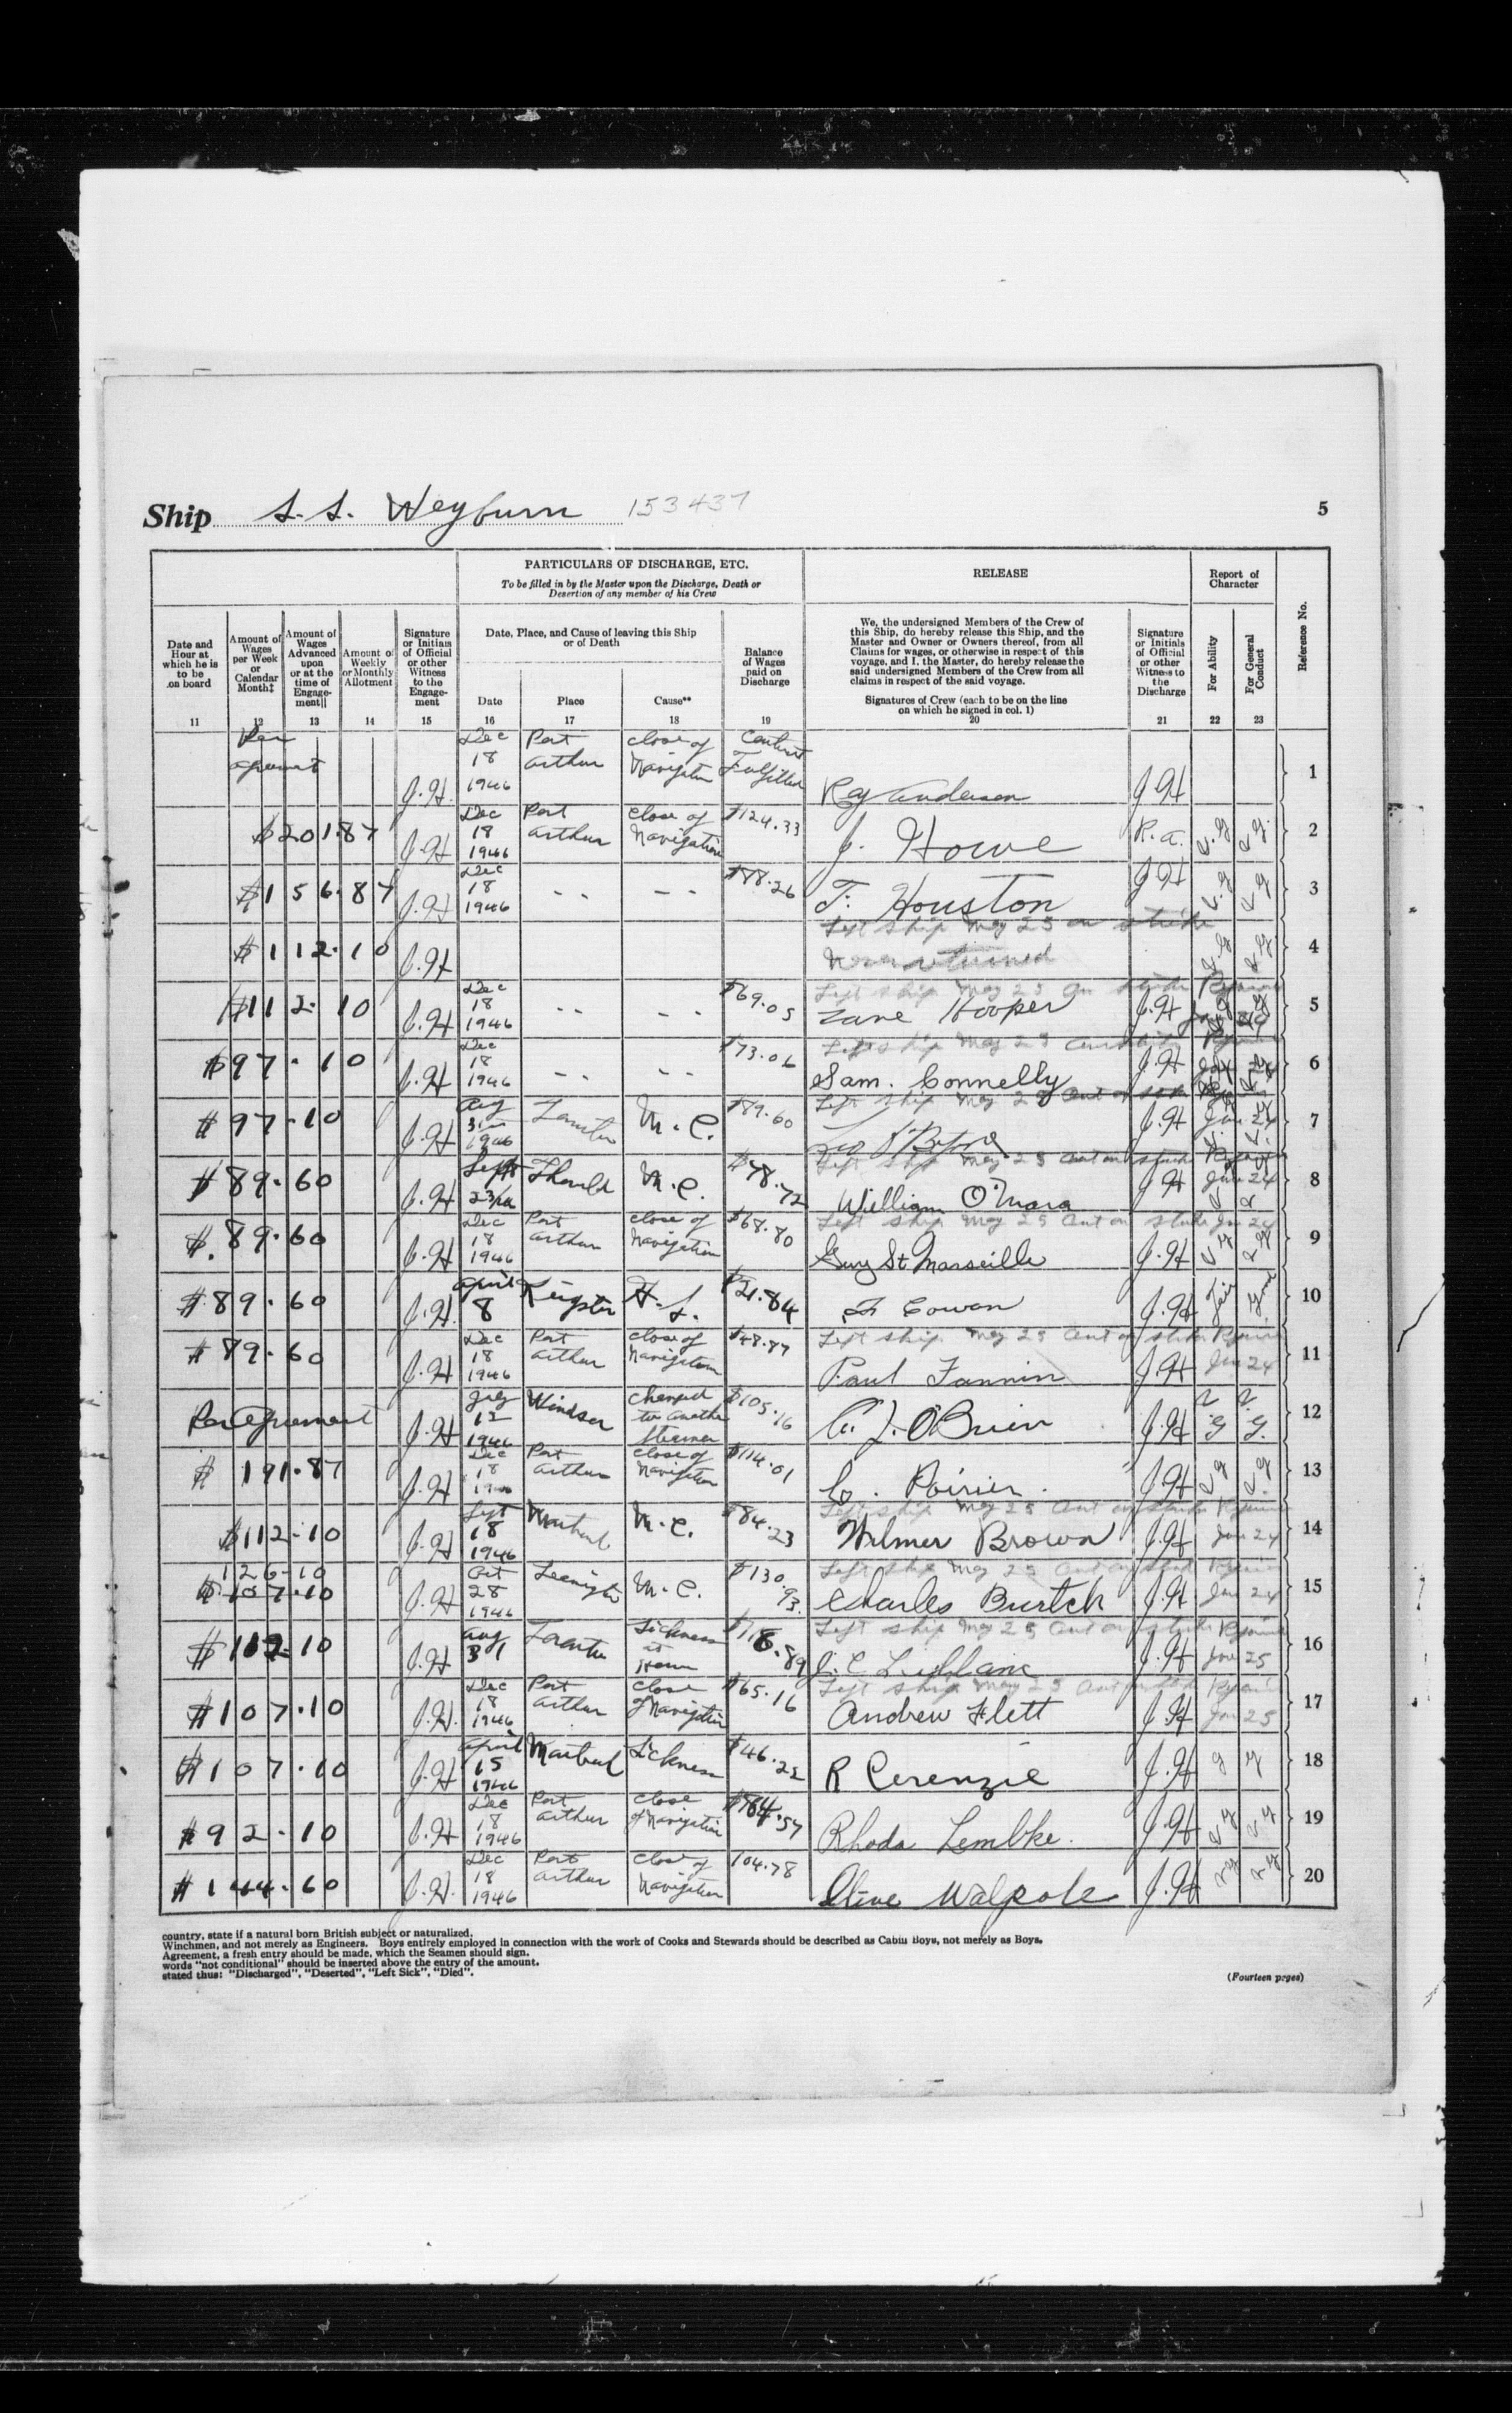 Ship S.S. Weyburn 153437
5
PARTICULARS OF DISCHARGE, ETC.
To be filled in by the Master upon the Discharge, Death or
Desertion of any member of his Crew
RELEASE
Report of
Character
Date and
Hour at
which he is
to be
on board
11
Amount of
Wages
per Week
or
Calendar
Month‡
12
Amount of
Wages
Advanced
upon
or at the
time of
Engage-
ment||
13
Amount of
Weekly
or Monthly
Allotment
14
Signature
or Initials
of Official
or other
Witness
to the
Engage-
ment
15
Date, Place, and Cause of leaving this Ship
or of Death
Date
16
Place
17
Cause**
18
Balance
of Wages
paid on
Discharge
19
We, the undersigned Members of the Crew of
this Ship, do hereby release this Ship, and the
Master and Owner or Owners thereof, from all
Claims for wages, or otherwise in respect of this
voyage, and I, the Master, do hereby release the
said undersigned Members of the Crew from all
claims in respect of the said voyage.
Signatures of Crew (each to be on the line
on which he signed in col. 1)
20
Signature
or Initials
of Official
or other
Witness to
the
Discharge
21
For Ability
22
For General
Conduct
23
Reference No.
Per agreement J.H. Dec 18 1946 Port Arthur Close of Navigation Contract Fulfilled Roy Anderson J.H. 1
$201.87 J.H. Dec 18 1946 Port Arthur Close of Navigation $124.33 J. Howe R.A. V.G V.G. 2
$156.87 J.H. Dec 18 1946 -- -- $88.26 T. Houston J.H V.G V.G 3
$112.10 J.H. Left ship May 25 on strike
Never returned V.G V.G 4
Left ship May 25 on strike
$112.10 J.H. Dec 18 1946 -- -- $69.05 Zane Hooper J.H 5
Left ship May 25
$97.10 J.H. Dec 18 1946 -- -- $73.06 Sam. Connelly J.H 6
Left ship May 25
$97.10 J.H. Aug 31 1946 M.C. $89.60 J.H June 24 7
Left ship May 25 out on strike
$89.60 J.H. Sept 23rd Thorold M.C. $78.72 William O'Mara J.H June 24 8
Left ship May 25 out on strike
$89.60 J.H. Dec 18 1946 Port Arthur Close of Navigation $68.80 Guy St Marseille J.H V G V G 9
$89.60 J.H. April 8 $21.84 Cowan J.H Fair Good 10
Left ship May 25 out on strike
$89.60 J.H. Dec 18 1946 Port Arthur Close of Navigation $48.87 Paul Fannin J.H June 24 11
Per Agreement J.H. July 12 1946 Windsor Changed to another steamer $105.16 C. J. O'Brien J.H V G V. G. 12
$191.87 J.H. Dec 18 Port Arthur Close of Navigation $114.01 Poirier J.H V G V G 13
Left ship May 25 out on strike
$112.10 J.H. Sept 18 1946 Montreal M.C. $84.23 Wilmer Brown J.H June 24 14
126.10
Left ship May 25 out on strike
$107.10 J.H. Oct 28 1946 M.C. $130.93 Charles Burtch J.H June 24 15
Left ship May 25 out on strike
J.H. Aug 31 Toronto Sickness at Home J.H June 25 16
Left ship May 25
$107.10 J.H. Dec 18 1946 Port Arthur Close of Navigation $65.16 Andrew Flett J.H June 25 17
$107.10 J.H. April 15 1946 Montreal Sickness $46.22 R Cerenzie J.H G G 18
$92.10 J.H. Dec 18 1946 Port Arthur Close of Navigation Rhoda Lembke. J.H V G V G 19
$144.60 J.H. Dec 18 1946 Port Arthur Close of Navigation 104.78 Olive Walpole J.H V G V G 20
country, state if a natural born British subject or naturalized.
Winchmen, and not merely as Engineers. Boys entirely employed in connection with the work of Cooks and Stewards should be described as Cabin Boys, not merely as Boys.
Agreement, a fresh entry should be made, which the Seamen should sign.
words "not conditional" should be inserted above the entry of the amount.
stated thus: "Discharged", "Deserted", "Left Sick", "Died".
(Fourteen pages)